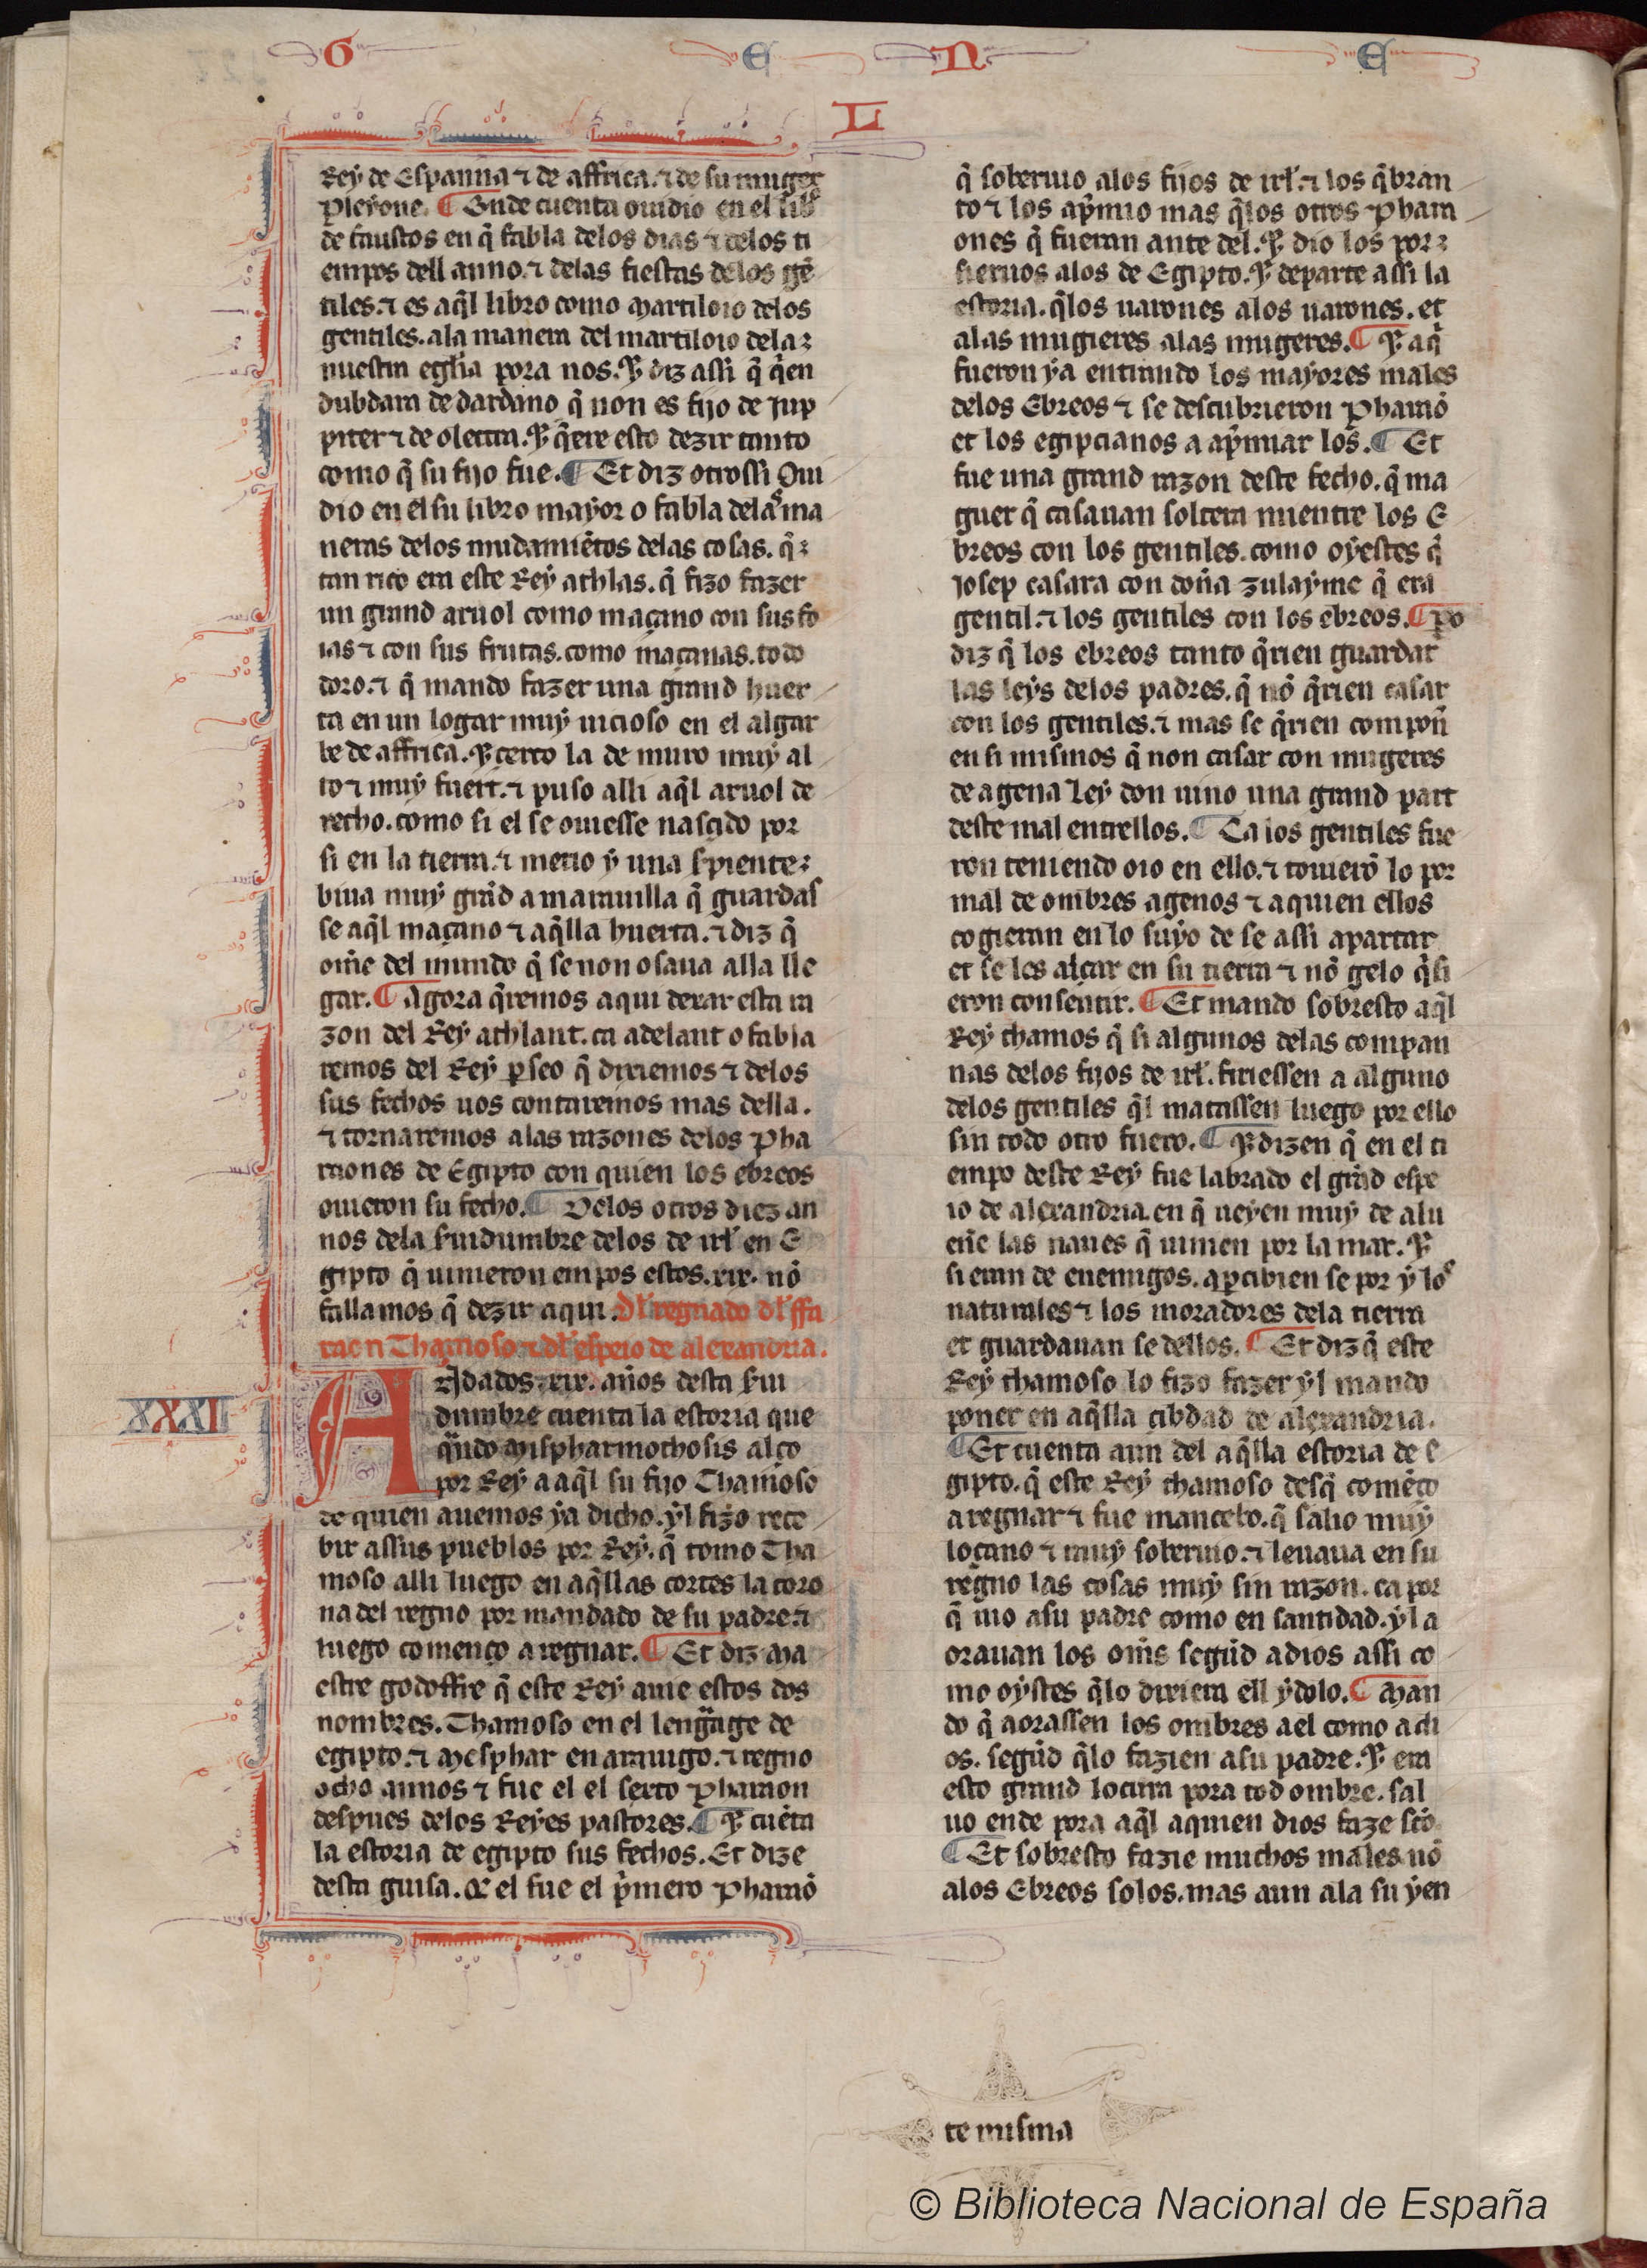 G E N E
L
Rey de Espanna ⁊ de affrica. ⁊ de su muger
pleyone. ¶ Onde cuenta ouidio en el lib̃
de faustos en q̃ fabla delos dias ⁊ delos ti
empos dell anno. ⁊ delas fiestas delos gẽ
tiles. ⁊ es aq̃l libro como martiloio delos
gentiles. ala manera del martiloio dela
nuestra eglia pora nos. ⁊ diz assi q̃ q̃en
dubdara de dardano q̃ non es fijo de Jup
piter ⁊ de olectra. ⁊ q̃ere esto dezir tanto
como q̃ su fijo fue. ¶ Et diz otrossi Oui
dio en el su libro mayor o fabla delas ma
neras delos mudamiẽtos delas cosas. q̃
tan rico era este Rey athlas. q̃ fizo fazer
un grand aruol como maçano con sus fo
ias ⁊ con sus frutas. como maçanas. todo
doro. ⁊ q̃ mando fazer una grand huer
ta en un logar muy uicioso en el algar
be de affrica. ⁊ cerco la de muro muy al
to ⁊ muy fuert. ⁊ puso alli aq̃l aruol de
recho. como si el se ouiesse nasçido por
si en la tierra. ⁊ metio y una s̃piente
biua muy grãd a marauilla q̃ guardas
se aq̃l maçano ⁊ aq̃lla huerta. ⁊ diz q̃
om̃e del mundo q̃ se non osaua alla lle
gar. ¶ Agora q̃remos aqui dexar esta ra
zon del Rey athlant. ca adelant o fabla
remos del Rey p̱seo q̃ diremos ⁊ delos
sus fechos uos contaremos mas della.
⁊ tornaremos alas razones delos Pha
raones de Egipto con quien los ebreos
ouieron su fecho. ¶ Delos otros diez an
nos dela s̃uidumbre delos de irl̃ en E
gipto q̃ uinieron empos estos. xix. nõ
fallamos q̃ dezir aqui. Dl̃ regnado dl̃ ffa
raon Thamoso. ⁊ dl̃ espeio de alexandria.
XXXII
ANdados. xix. ãnos desta s̃ui
dumbre cuenta la estoria que
q̃ndo mispharmothosis alço
por Rey a aq̃l su fijo Thamoso
de quien auemos ya dicho. yl fizo rece
bir assus pueblos por Rey. q̃ tomo Tha
moso alli luego en aq̃llas cortes la coro
na del regno por mandado de su padre. ⁊
luego començo a regnar. ¶ Et diz ma
estre godoffre q̃ este Rey auie estos dos
nombres. Thamoso en el leng̃age de
egipto. ⁊ Mesphar en arauigo. ⁊ regno
ocho annos ⁊ fue el el sexto Pharaon
despues delos Reyes pastores. ¶ ⁊ cuẽta
la estoria de egipto sus fechos. Et dize
desta guisa. Q̃ el fue el p̃mero Pharaõ
q̃ soberuio alos fijos de irl̃. ⁊ los q̃bran
to ⁊ los ap̃mio mas q̃los otros Phara
ones q̃ fueran ante del. ⁊ dio los por
sieruos alos de Egipto. ⁊ departe assi la
estoria. q̃los uarones alos uarones. et
alas mugieres alas mugeres. ¶ ⁊ aq̃
fueron ya entrando los mayores males
delos Ebreos ⁊ se descubrieron Pharaõ
et los egipcianos a ap̃miar los. ¶ Et
fue una grand razon deste fecho. q̃ ma
guer q̃ casauan soltera mientre los E
breos con los gentiles. como oyestes q̃
Josep casara con doña zulayme q̃ era
gentil. ⁊ los gentiles con los ebreos. ¶ p̱o
diz q̃ los ebreos tanto q̃rien guardar
las leys delos padres. q̃ nõ q̃rien casar
con los gentiles. ⁊ mas se q̃rien compoñ
en si mismos q̃ non casar con mugeres
de agena Ley don uino una grand part
deste mal entrellos. ¶ Ca los gentiles fue
ron teniendo oio en ello. ⁊ touierõ lo por
mal de ombres agenos ⁊ aquien ellos
cogieran en lo suyo de se assi apartar
et se les alçar en su tierra ⁊ nõ gelo q̃si
eron consentir. ¶ Et mando sobresto aq̃l
Rey thamos q̃ si algunos delas compan
nas delos fijos de irl̃. firiessen a alguno
delos gentiles q̃l matassen luego por ello
sin todo otro fuero. ¶ ⁊ dizen q̃ en el ti
empo deste Rey fue labrado el grãd espe
io de alexandria. en q̃ ueyen muy de alu
eñe las naues q̃ uinien por la mar. ⁊
si eran de enemigos. ap̱cibien se por y los
naturales ⁊ los moradores dela tierra
et guardauan se dellos. ¶ Et diz q̃ este
Rey thamoso lo fizo fazer yl mando
poner en aq̃lla cibdad de alexandria.
¶ Et cuenta aun del aq̃lla estoria de e
gipto. q̃ este Rey thamoso desq̃ comẽço
a regnar ⁊ fue mancebo. q̃ salio muy
loçano ⁊ muy soberuio. ⁊ leuaua en su
regno las cosas muy sin razon. ca por
q̃ uio asu padre como en santidad. yl a
orauan los om̃s segũd adios assi co
mo oystes q̃lo diziera ell ydolo. ¶ Man
do q̃ aorassen los ombres ael como a di
os. segũd q̃lo fazien asu padre. ⁊ era
esto grand locura pora tod ombre. sal
uo ende pora aq̃l aquien dios faze scõ.
¶ Et sobresto fazie muchos males nõ
alos Ebreos solos. mas aun ala su yen
te misma
© Biblioteca Nacional de España